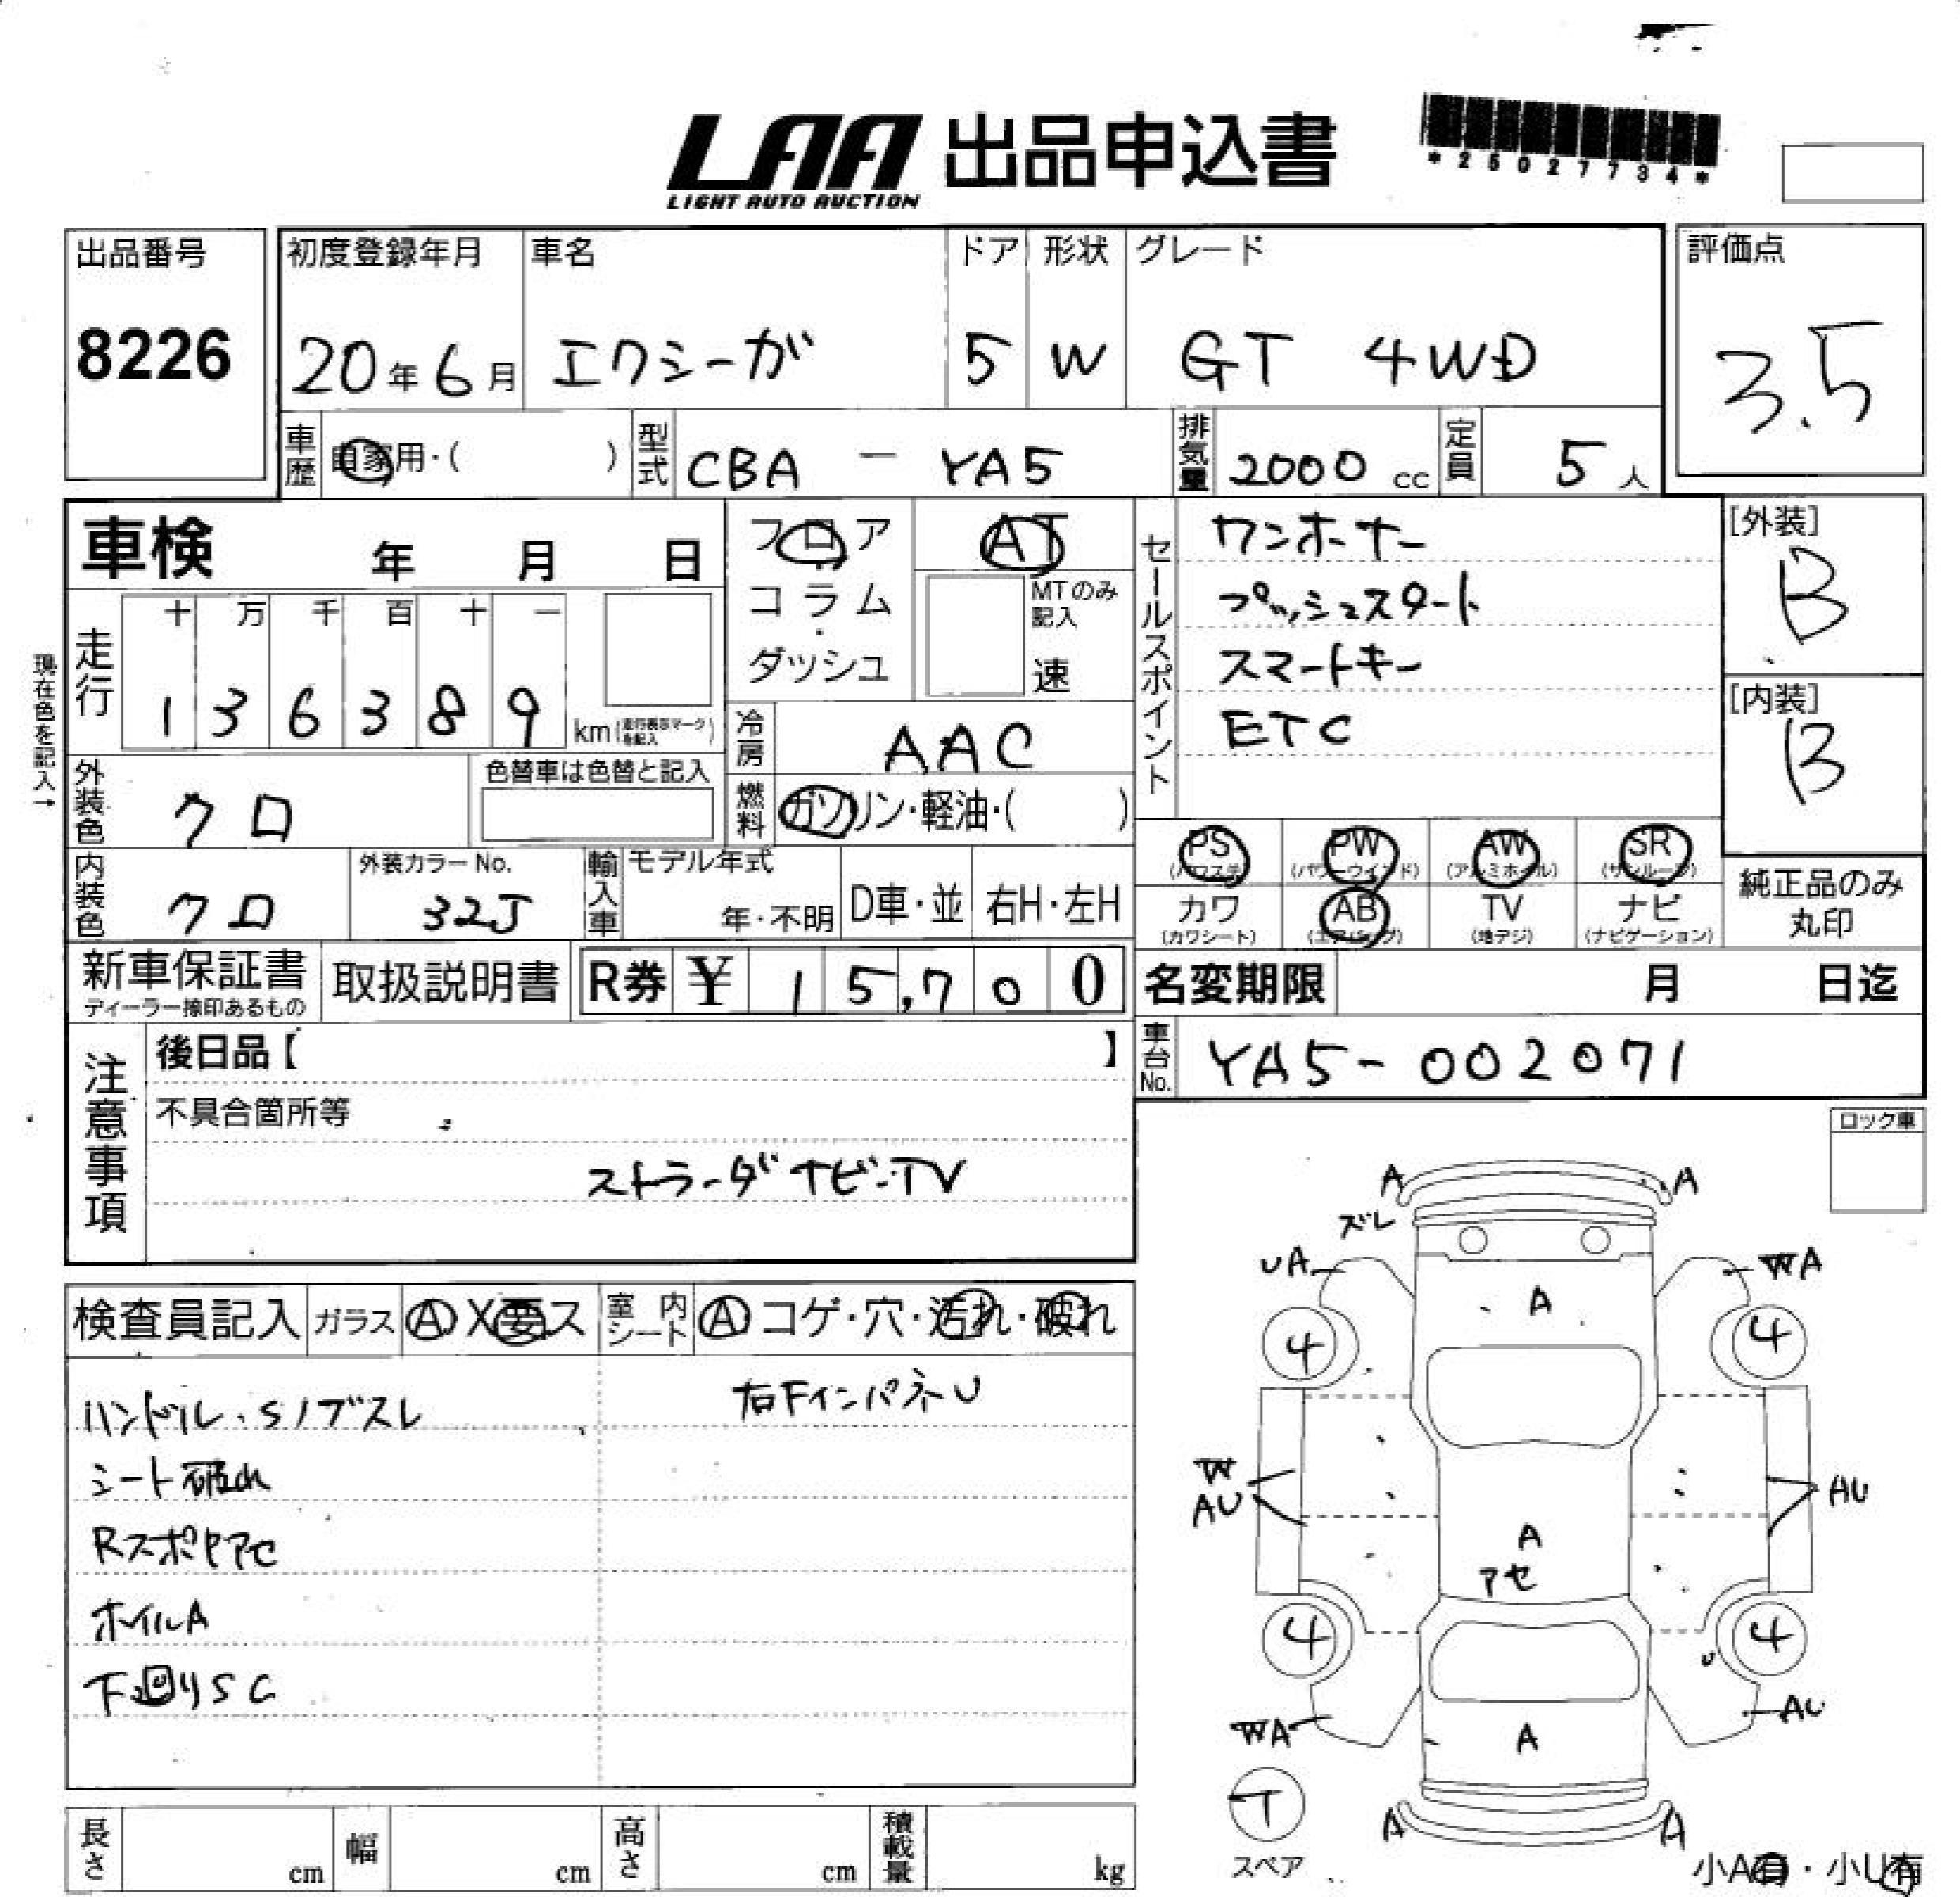 LAA 出品申込書
LIGHT AUTO AUCTION
*25027734*
出品番号
8226
初度登録年月
20年6月
車名
エクシーガ
ドア
5
形状
W
グレード
GT 4WD
評価点
3.5
車歴
自家用・( )
型式
CBA - YA5
排気量
2000 cc
定員
5人
車検 年 月 日
フロア
コラム
・
ダッシュ
AT
MTのみ記入
速
セールスポイント
ワンオーナー
プッシュスタート
スマートキー
ETC
[外装]
B
[内装]
B
現在色を記入→
走行
十 万 千 百 十 一
1 3 6 3 8 9 km(走行表示マークを記入)
冷房
AAC
外装色
クロ
色替車は色替と記入
燃料
ガソリン・軽油・( )
内装色
クロ
外装カラーNo.
32J
輸入車
モデル年式
年・不明
D車・並
右H・左H
PS
(パワステ)
PW
(パワーウインド)
AW
(アルミホイル)
SR
(サンルーフ)
カワ
(カワシート)
AB
(エアバッグ)
TV
(地デジ)
ナビ
(ナビゲーション)
純正品のみ
丸印
新車保証書
ディーラー捺印あるもの
取扱説明書
R券 ¥ 15,700
名変期限 月 日迄
車台No.
YA5-002071
注意事項
後日品【 】
不具合箇所等
ストラーダナビ・TV
ロック車
検査員記入
ガラス
A X 要 ス
室内シート
A コゲ・穴・汚れ・破れ
ハンドル・Sノブスレ
右FインパネU
シート破れ
Rスポアセ
ホイルA
下廻りSC
A A
ズレ
UA WA
A
4 4
W
AU AU
A
アセ
4 4
U
WA AU
A
T
スペア
A A
小A有・小U有
長さ cm
幅 cm
高さ cm
積載量 kg